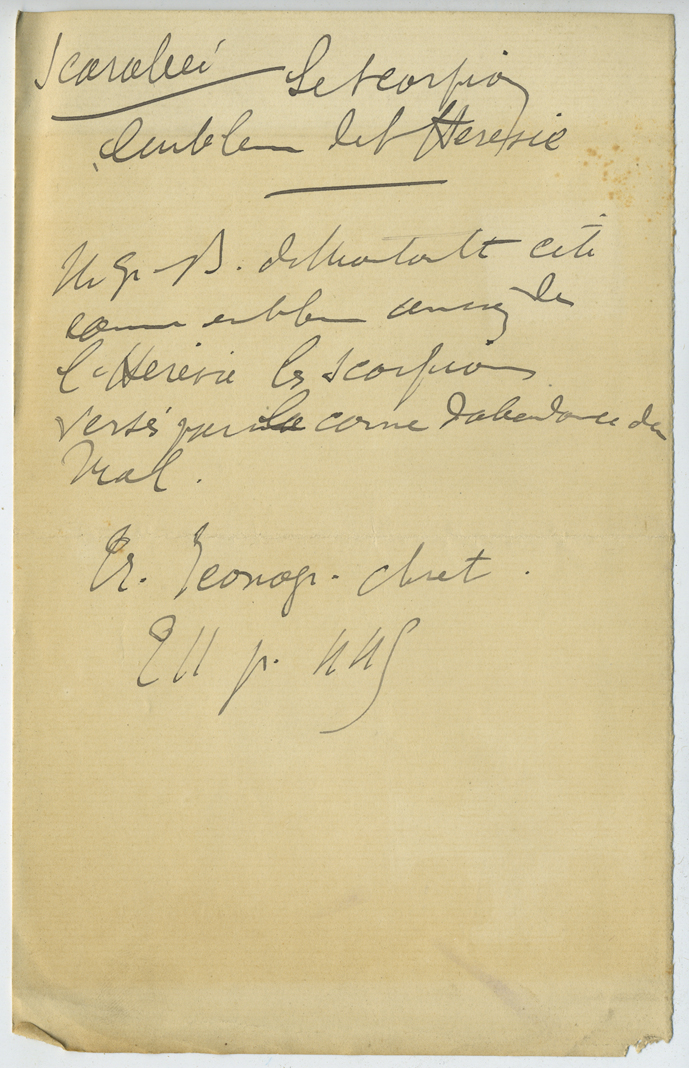 Scarabéi Le scorpion
emblem de l'Heresie
Mgr B. de Montault cite
comme emblem aussi de
l'Heresie les scorpions
versés par la corne d'abondance du
Mal.
Tr. Iconogr. chret.
T II p.